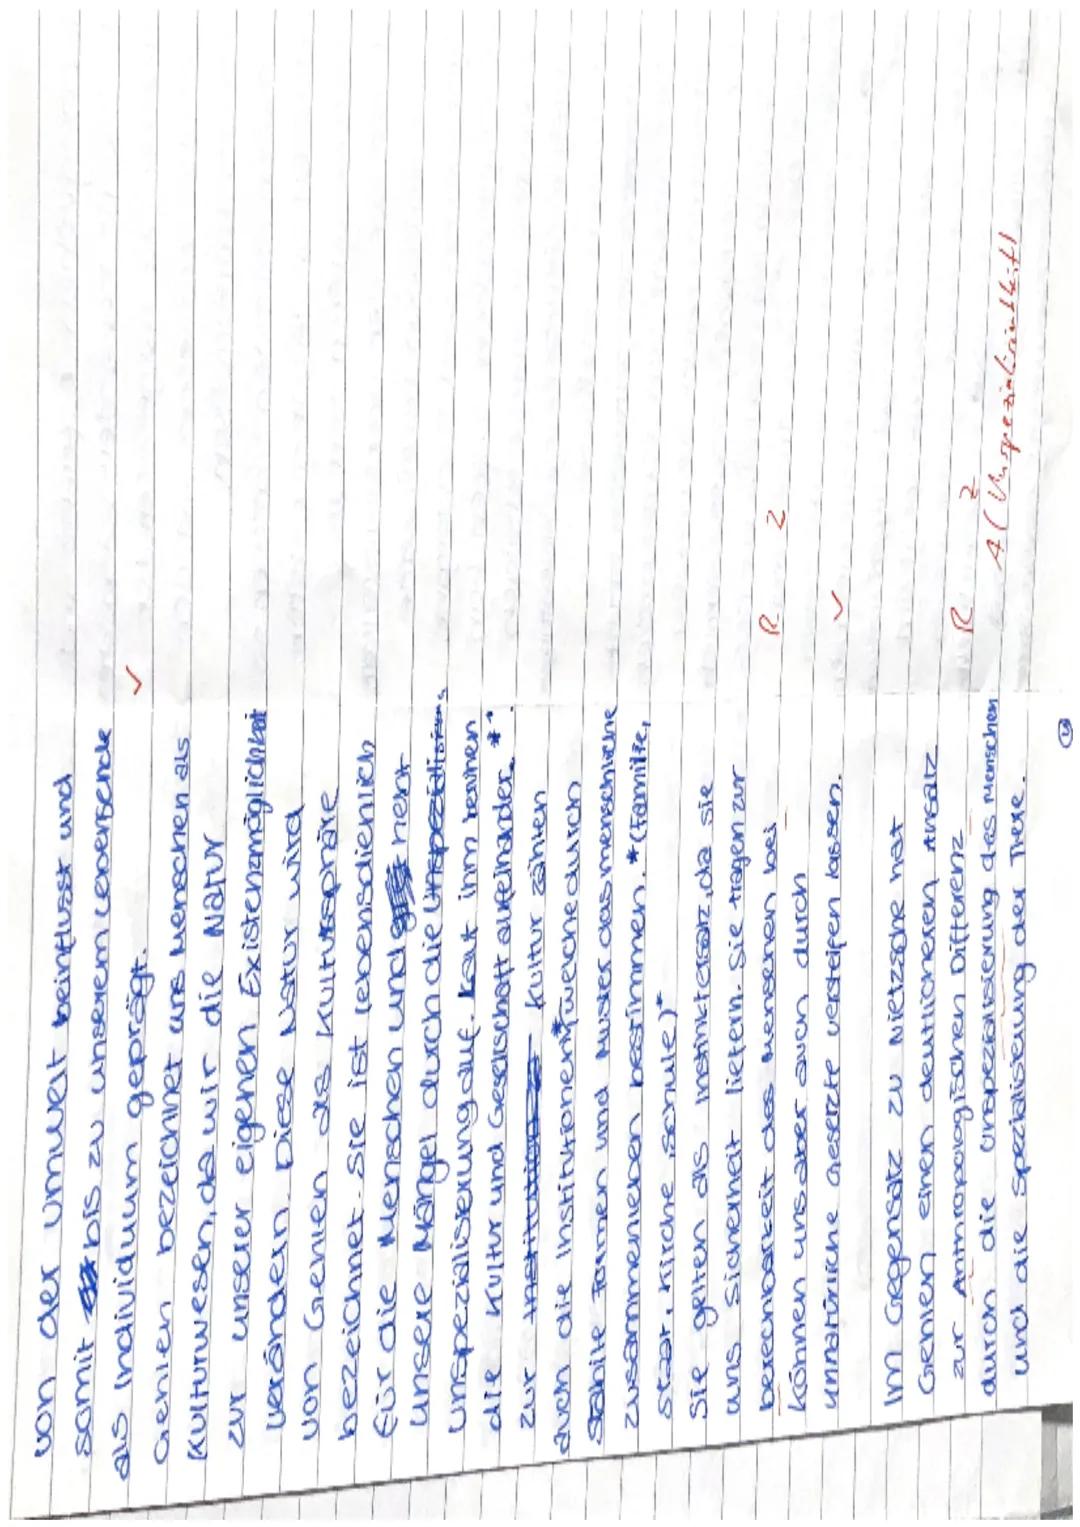 von der Umwelt beinflusst und
somit bis zu unserem Lebensende
als Individuum geprägt. ✓
Gehlen bezeichnet uns Menschen als
Kulturwesen, da wir die Natur
zur unserer eigenen Existenzmöglichkeit
verändern. Diese Natur wird
von Gehlen als Kultursphäre
bezeichnet. Sie ist lebensdienlich
für die Menschen und hebt
unsere Mängel durch die
Unspezialisierung auf. Laut ihm bauen
die Kultur und Gesellschaft aufeinander. **
zur Kultur zählen
auch die Institutionen*, welche durch
Stabile Formen und Muster das menschliche
zusammenleben bestimmen. * (Familie,
Staat, Kirche, Schule)*
Sie gelten als Instinktersatz, da sie
uns Sicherheit liefern. Sie tragen zur
berechenbarkeit des Menschen bei R Z
können uns aber auch durch
unnatürliche Gesetze versteifen lassen. ✓
Im Gegensatz zu Nietzsche hat
Gehlen einen deutlicheren Ansatz
zur Anthropologischen Differenz R Z
durch die Unspezialisierung des Menschen A (Unspezialisiertheit)
und die Spezialisierung der Tiere.